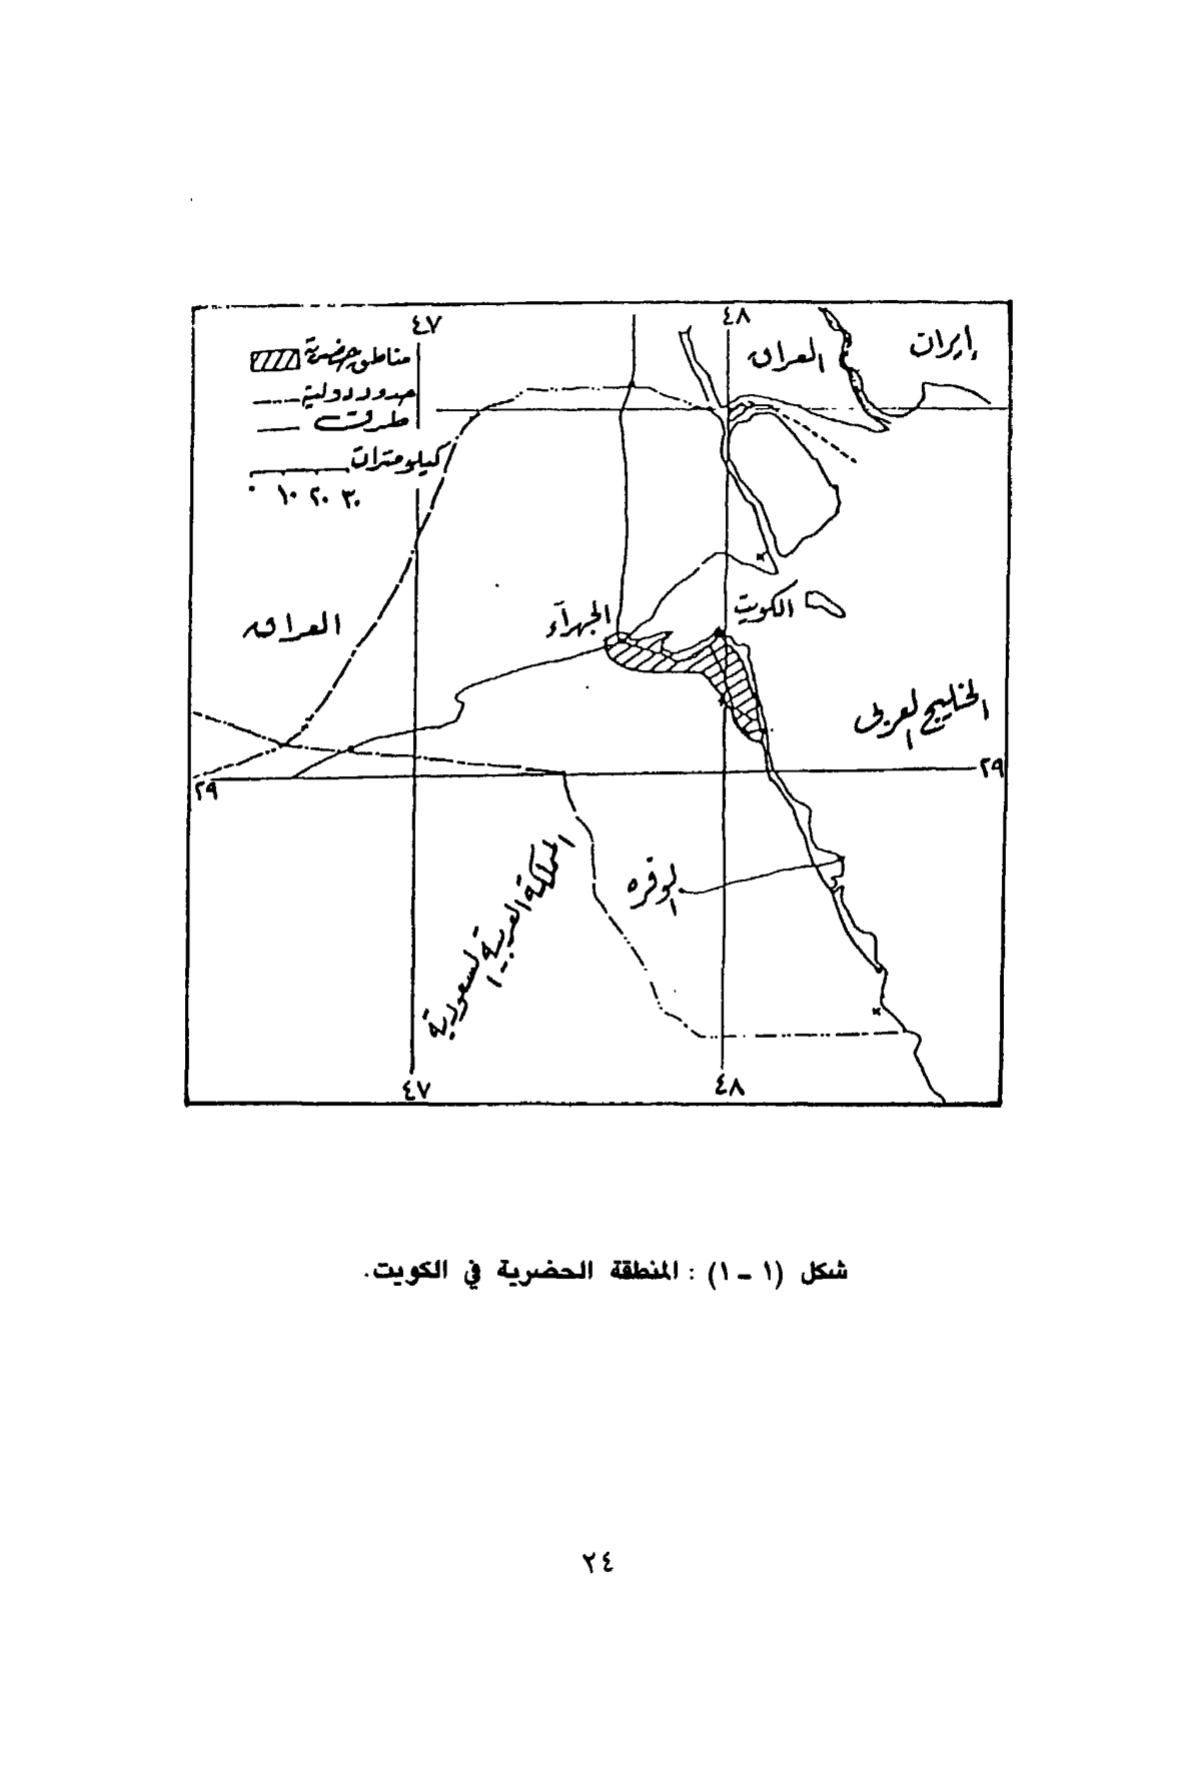 ٤٧
٤٨
إيران
العراق
مناطق حضرية
حدود دولية
طرق
كيلومترات
٠ ١٠ ٢٠ ٣٠
العراق
الجهراء
الكويت
الخليج العربي
٢٩
٢٩
الوفره
المملكة العربية السعودية
٤٧
٤٨
شكل (١ – ١) : المنطقة الحضرية في الكويت.
٢٤